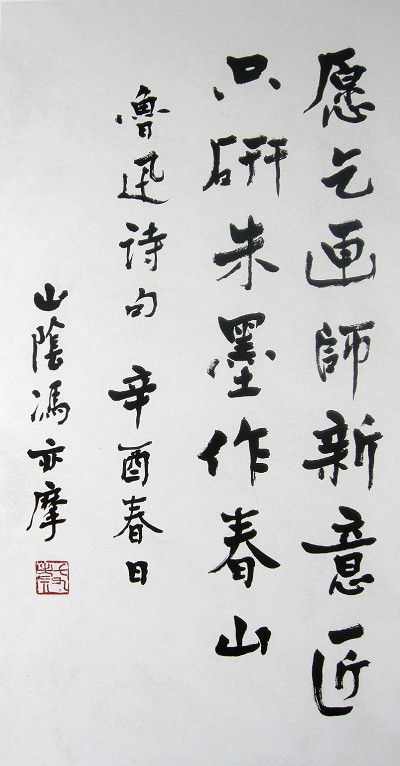 愿乞画師新意匠
只研朱墨作春山
魯迅詩句 辛酉春日
山陰馮亦摩